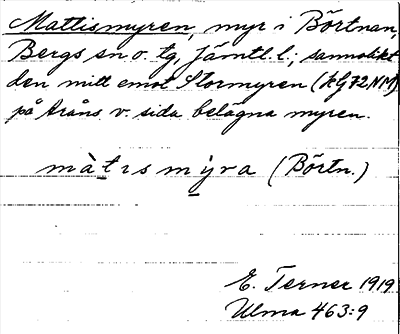 Mattismyren, myr i Börtnan,
Bergs sn o. tg, Jämtl. l.; sannolikt
den mitt emot Stormyren (kg 72 NM)
på åns v. sida belägna myren.
màtısmy̱ra (Börtn.)
E. Terner 1919
Ulma 463:9